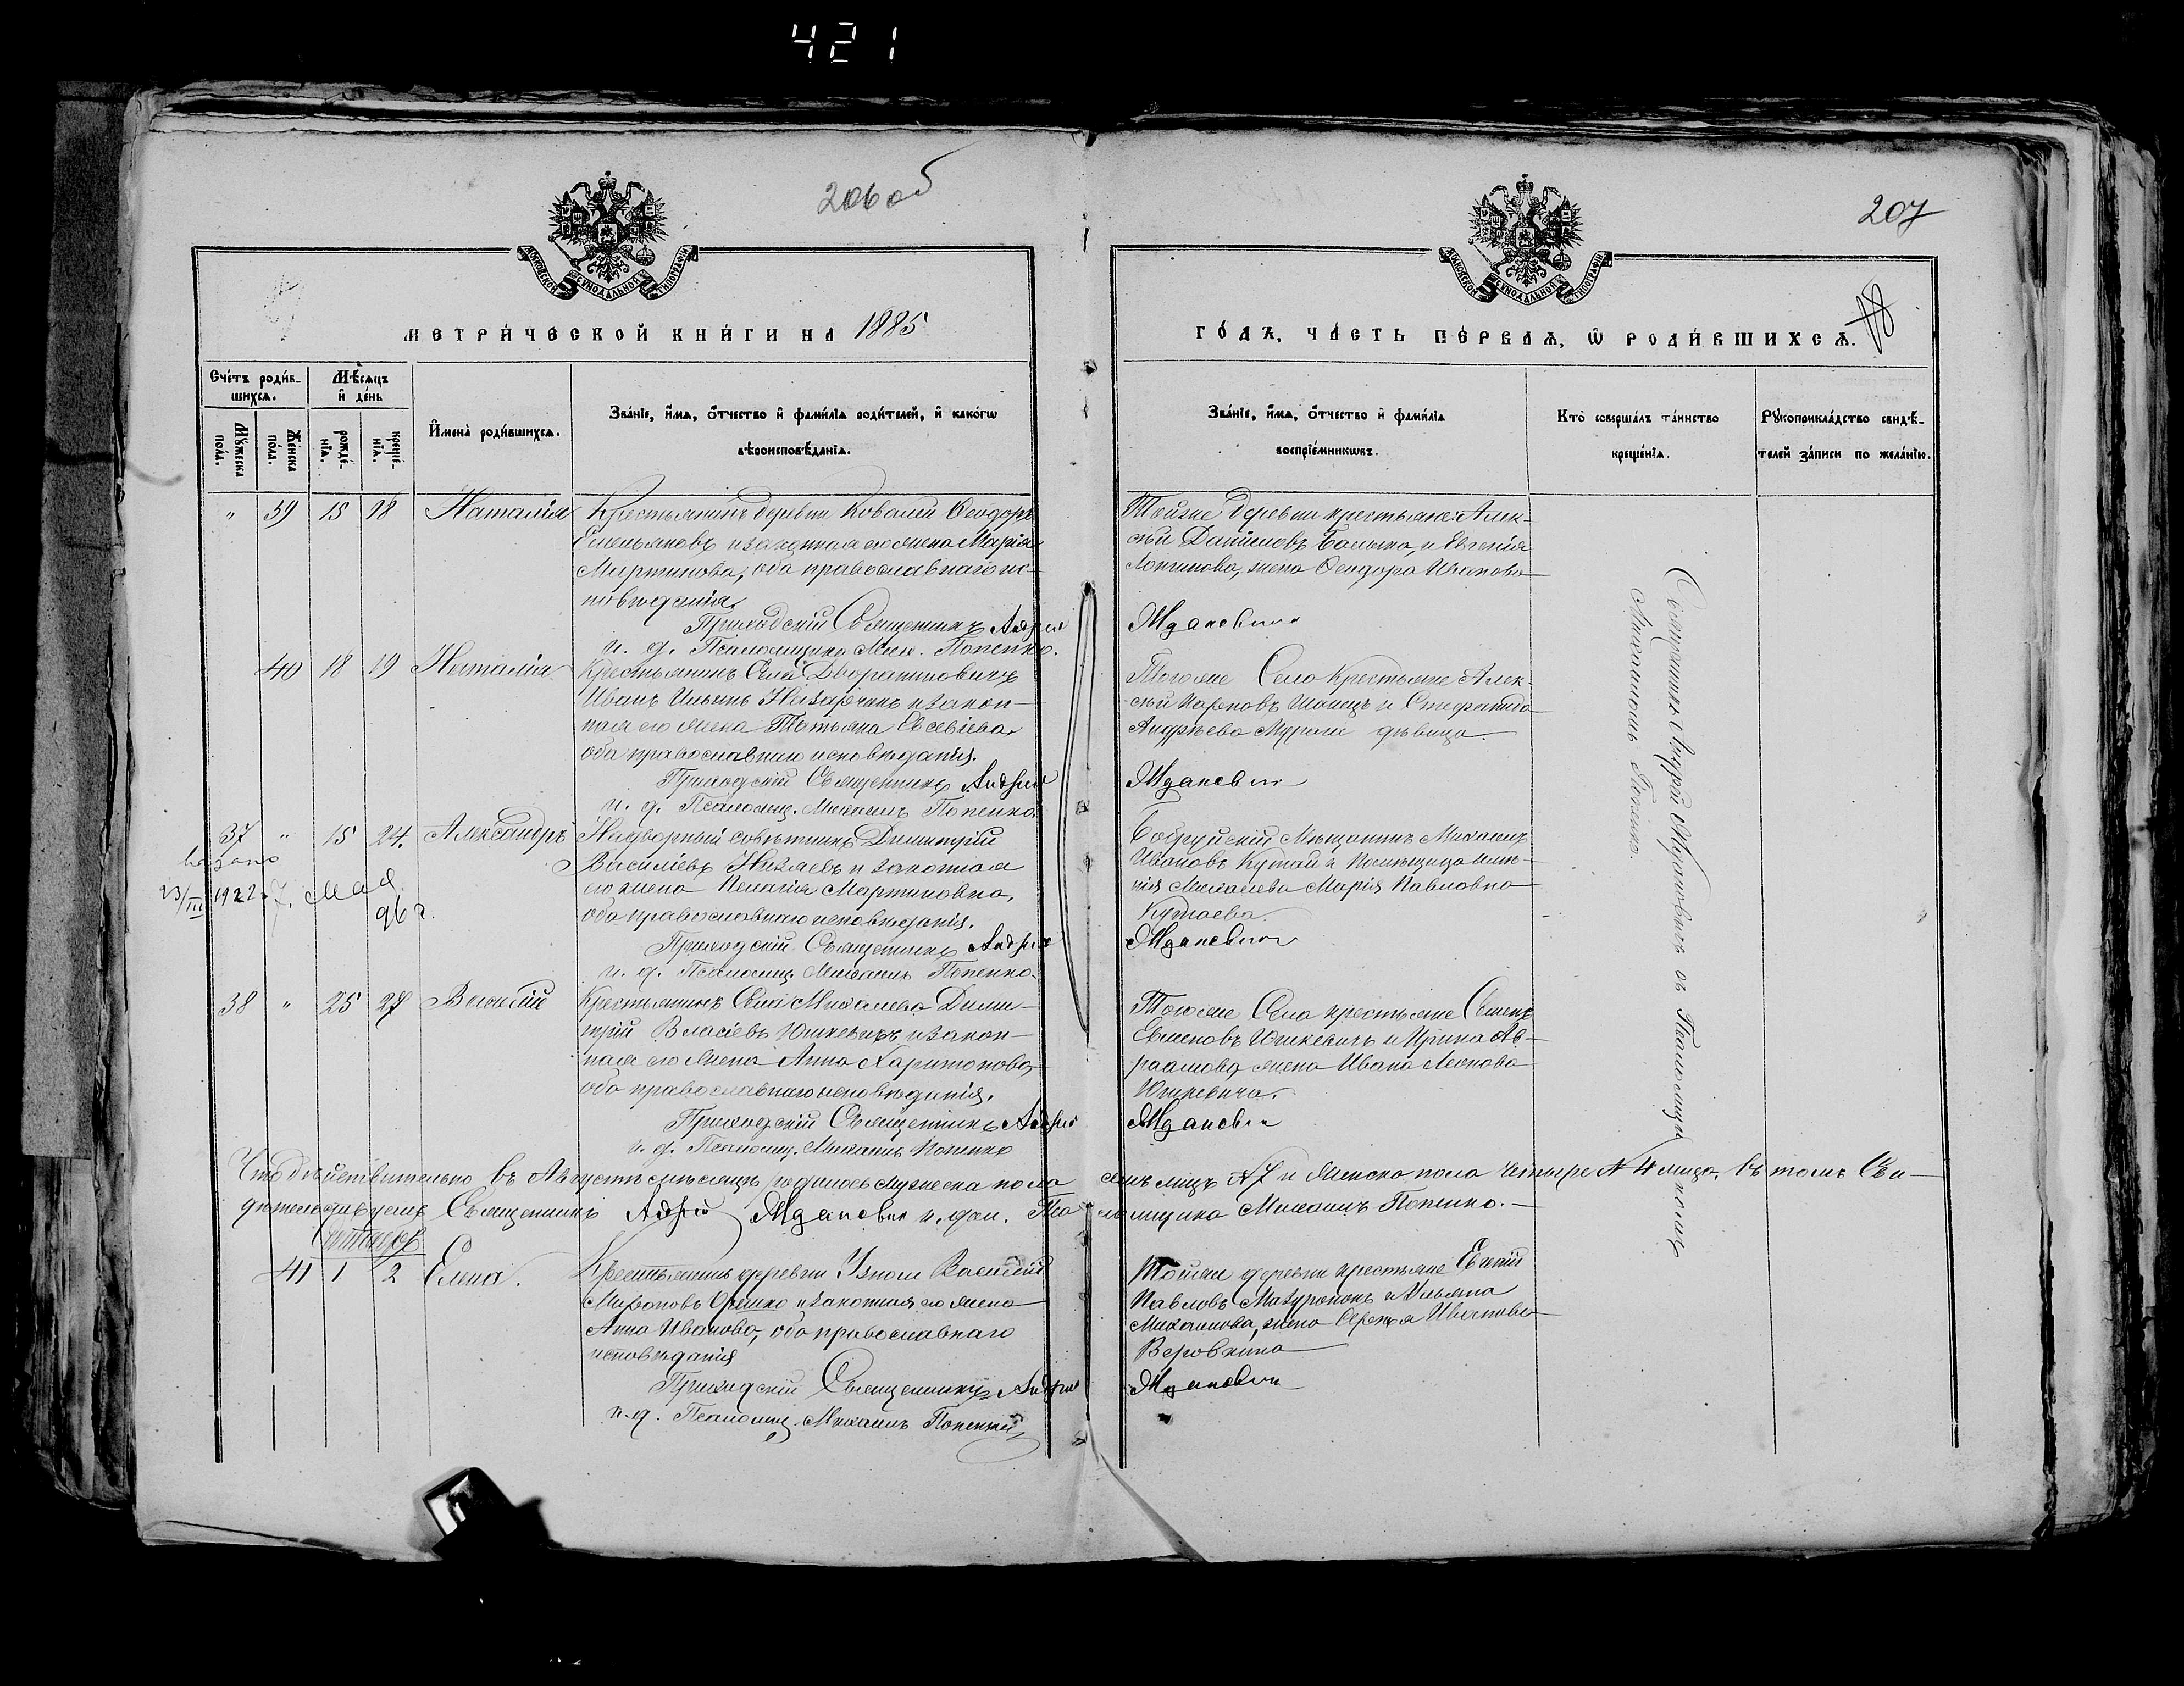 421
206 об
207
МОСКОВСКОЙ СѴНОДАЛЬНОЙ ТИПОГРАФІИ
МОСКОВСКОЙ СѴНОДАЛЬНОЙ ТИПОГРАФІИ
МЕТРИ́ЧЕСКОЙ КНИ́ГИ НА 1885
ГО́ДЪ, ЧА́СТЬ ПЕ́РВАѦ, Ѡ РОДИ́ВШИХСѦ.
Сче́тъ роди́в-
шихсѧ.
Мꙋ́жеска по́ла.
Же́нска по́ла.
Мѣ́сѧцъ
и҆ де́нь
рожде́-
нїѧ.
креще́-
нїѧ.
И҆мена̀ роди́вшихсѧ.
Зва́нїе, и҆́мѧ, ѻ҆́тчество и҆ фами́лїѧ роди́телей, и҆ како́гѡ
вѣроисповѣ́данїѧ.
Зва́нїе, и҆́мѧ, ѻ҆́тчество и҆ фами́лїѧ
воспрїе́мникѡвъ.
Кто̀ соверша́лъ та́инство
креще́нїѧ.
Рꙋкоприкла́дство свидѣ́-
телей за́писи по жела́нїю.
" 39 15 18 Наталія
Крестьянинъ деревни Ковали Ѳеодоръ
Емельяновъ и законная его жена Марія
Мартинова, оба православнаго ис-
повѣданія.
Приходскій Священникъ Андрей
и. д. Псаломщика Мих. Попенко.
Тойже деревни крестьяне: Алек-
сѣй Даниловъ и Евгенія
Логинова, жена Ѳеодора Иванова
Жданович
40 18 19 Наталія
Крестьянинъ Села Дворяниновичъ
Иванъ Ильинъ Назарчукъ и закон-
ная его жена Татьяна Евсевіева,
оба православнаго исповѣданія.
Приходскій Священникъ Андрей
и. д. Псаломщ. Михаилъ Попенко.
Тогоже Села Крестьяне Алек-
сѣй Карповъ и Стефанида
Андрѣева дѣвица
Жданович
37 " 15 24. Александръ
23/III 1922 г. 7. Мая
96 г.
Надворный совѣтникъ Димитрій
Васильевъ и законная
его жена Пелагія Мартиновна,
оба православнаго исповѣданія.
Приходскій Священникъ Андрей
и. д. Псаломщ. Михаилъ Попенко.
Бобруйскій Мѣщанинъ Михаилъ
Ивановъ и Помѣщица имѣ-
нія Михалева Марія Павловна
Жданович
38 " 25 27 Василій
Крестьянинъ Села Михалева Дими-
трій Власіевъ Юшкевичъ и закон-
ная его жена Анна Харитонова,
оба православнаго исповѣданія.
Приходскій Священникъ Андрей
и. д. Псаломщ. Михаилъ Попенко
Тогоже Села крестьяне Семенъ
Юшкевичъ и Ирина Ав-
раамова, жена Ивана
Юшкевича.
Жданович
Священникъ Андрей Ждановичъ съ Псаломщикомъ
Михаиломъ Попенко.
Что дѣйствительно въ Августѣ мѣсяцѣ родилось мужеска пола семь лицъ № 7 и женска пола четыре № 4 лица. Въ томъ Сви-
дѣтельствуемъ Священникъ Андрей Жданович и. дол. Псаломщика Михаилъ Попенко. —
41 1 2 Елена.
Крестьянинъ деревни Василій
Мироновъ Орешко и законная его жена
Анна Иванова, оба православнаго
исповѣданія
Приходскій Священникъ Андрей
и. д. Псаломщ. Михаилъ Попенко
Тойже деревни крестьяне
Павловъ и Ульяна
Михаилова, жена Иванова
Жданович